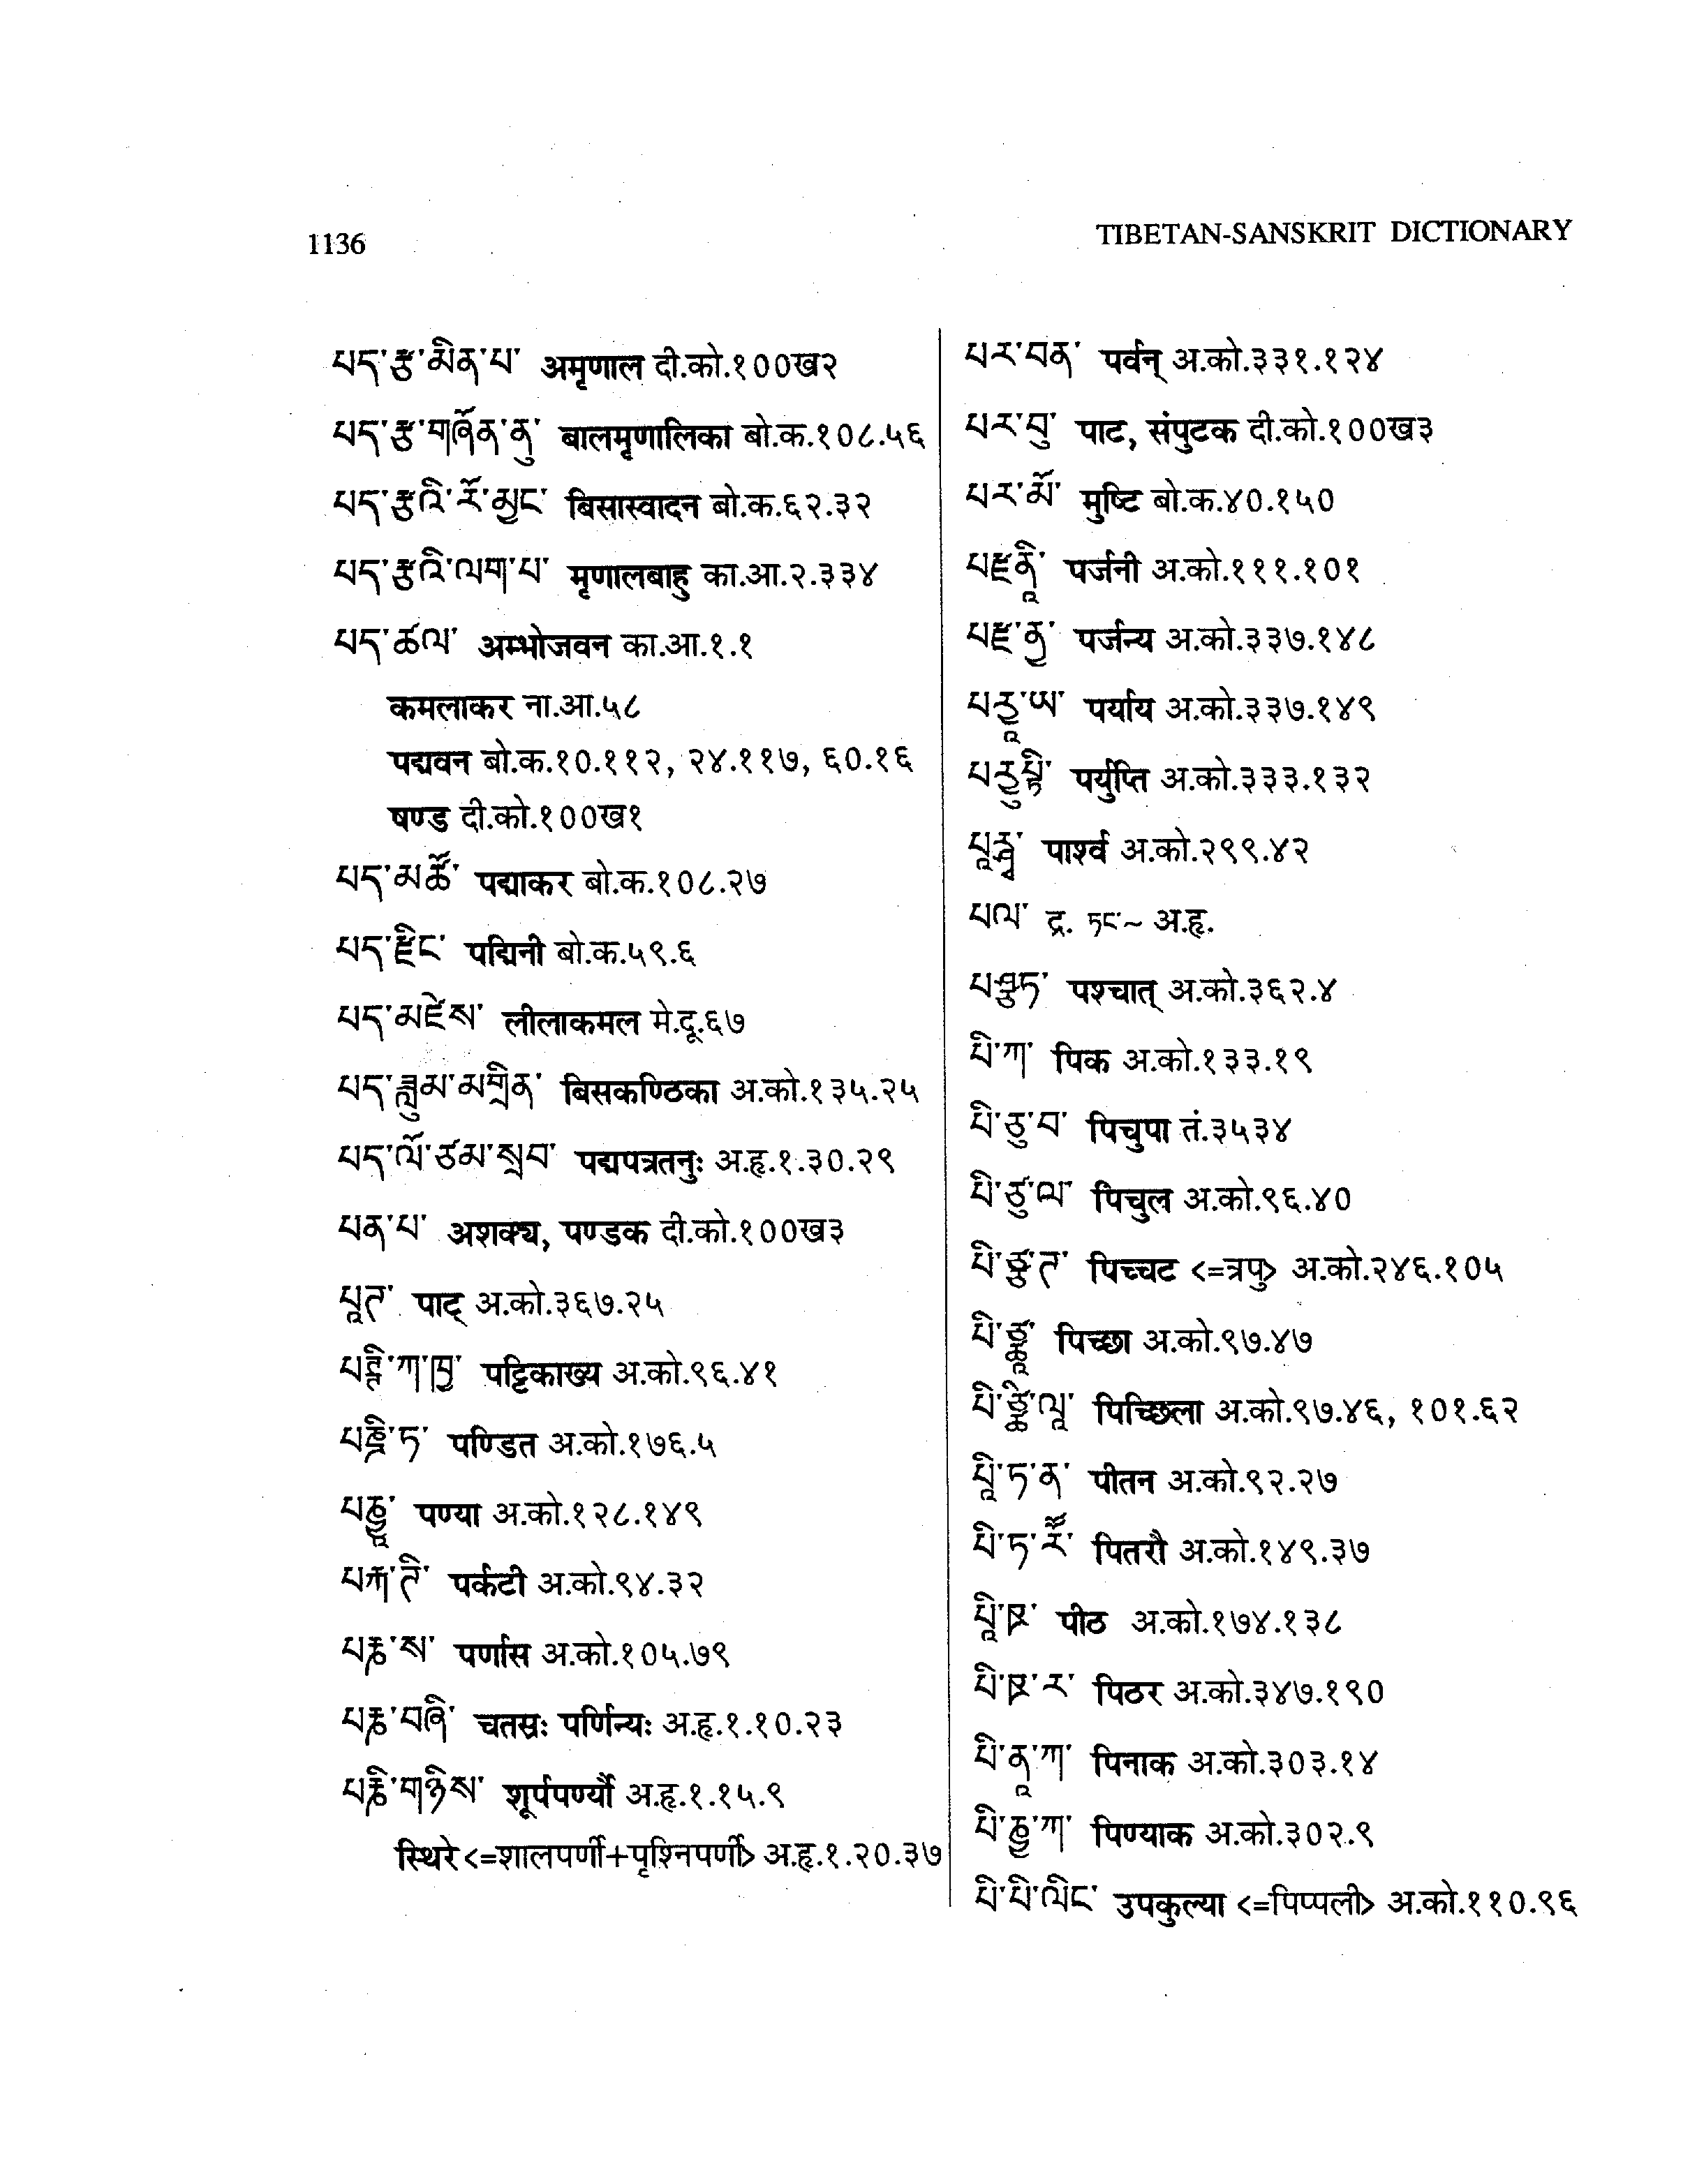 1136
TIBETAN-SANSKRIT DICTIONARY
པད་རྩ་མིན་པ་ अमृणाल दी.को.१००ख२
པད་རྩ་གཞོན་ནུ་ बालमृणालिका बो.क.१०८.५६
པད་རྩའི་རོ་མྱང་ बिसास्वादन बो.क.६२.३२
པད་རྩའི་ལག་པ་ मृणालबाहु का.आ.२.३३४
པད་ཚལ་ अम्भोजवन का.आ.१.१
कमलाकर ना.आ.५८
पद्मवन बो.क.१०.११२, २४.११७, ६०.१६
षण्ड दी.को.१००ख१
པད་མཚོ་ पद्माकर बो.क.१०८.२७
པད་རྫིང་ पद्मिनी बो.क.५९.६
པད་མཛེས་ लीलाकमल मे.दू.६७
པད་ཟླུམ་མགྲིན་ बिसकण्ठिका अ.को.१३५.२५
པད་ལོ་ཙམ་སྲབ་ पद्मपत्रतनुः अ.हृ.१.३०.२९
པན་པ་ अशक्य, पण्डक दी.को.१००ख३
པཱཊ་ पाट् अ.को.३६७.२५
པཊྚི་ཀ་ཁྱ་ पट्टिकाख्य अ.को.९६.४१
པཎྜི་ཏ་ पण्डित अ.को.१७६.५
པཎྱཱ་ पण्या अ.को.१२८.१४९
པརྐ་ཊི་ पर्कटी अ.को.९४.३२
པརྞ་ས་ पर्णास अ.को.१०५.७९
པརྞ་བཞི་ चतस्रः पर्णिन्यः अ.हृ.१.१०.२३
པརྞི་གཉིས་ शूर्पपर्ण्यौ अ.हृ.१.१५.९
स्थिरे <=शालपर्णी+पृश्निपर्णी> अ.हृ.१.२०.३७
པར་བན་ पर्वन् अ.को.३३१.१२४
པར་བུ་ पाट, संपुटक दी.को.१००ख३
པར་མོ་ मुष्टि बो.क.४०.१५०
པརྫནཱི་ पर्जनी अ.को.१११.१०१
པརྫ་ནྱ་ पर्जन्य अ.को.३३७.१४८
པརྱཱ་ཡ་ पर्याय अ.को.३३७.१४९
པརྱུཔྟི་ पर्युप्ति अ.को.३३३.१३२
པཱརྴྭ་ पार्श्व अ.को.२९९.४२
པལ་ द्र. ཏང་~ अ.हृ.
པཤྩཱཏ་ पश्चात् अ.को.३६२.४
པི་ཀ་ पिक अ.को.१३३.१९
པི་ཙུ་བ་ पिचुपा तं.३५३४
པི་ཙུ་ལ་ पिचुल अ.को.९६.४०
པི་ཙྩ་ཊ་ पिच्चट <=त्रपु> अ.को.२४६.१०५
པི་ཙྪཱ་ पिच्छा अ.को.९७.४७
པི་ཙྪི་ལཱ་ पिच्छिला अ.को.९७.४६, १०१.६२
པཱི་ཏ་ན་ पीतन अ.को.९२.२७
པི་ཏ་རཽ་ पितरौ अ.को.१४९.३७
པཱི་ཋ་ पीठ अ.को.१७४.१३८
པི་ཋ་ར་ पिठर अ.को.३४७.१९०
པི་ནཱ་ཀ་ पिनाक अ.को.३०३.१४
པི་ཎྱ་ཀ་ पिण्याक अ.को.३०२.९
པི་པི་ལིང་ उपकुल्या <=पिप्पली> अ.को.११०.९६